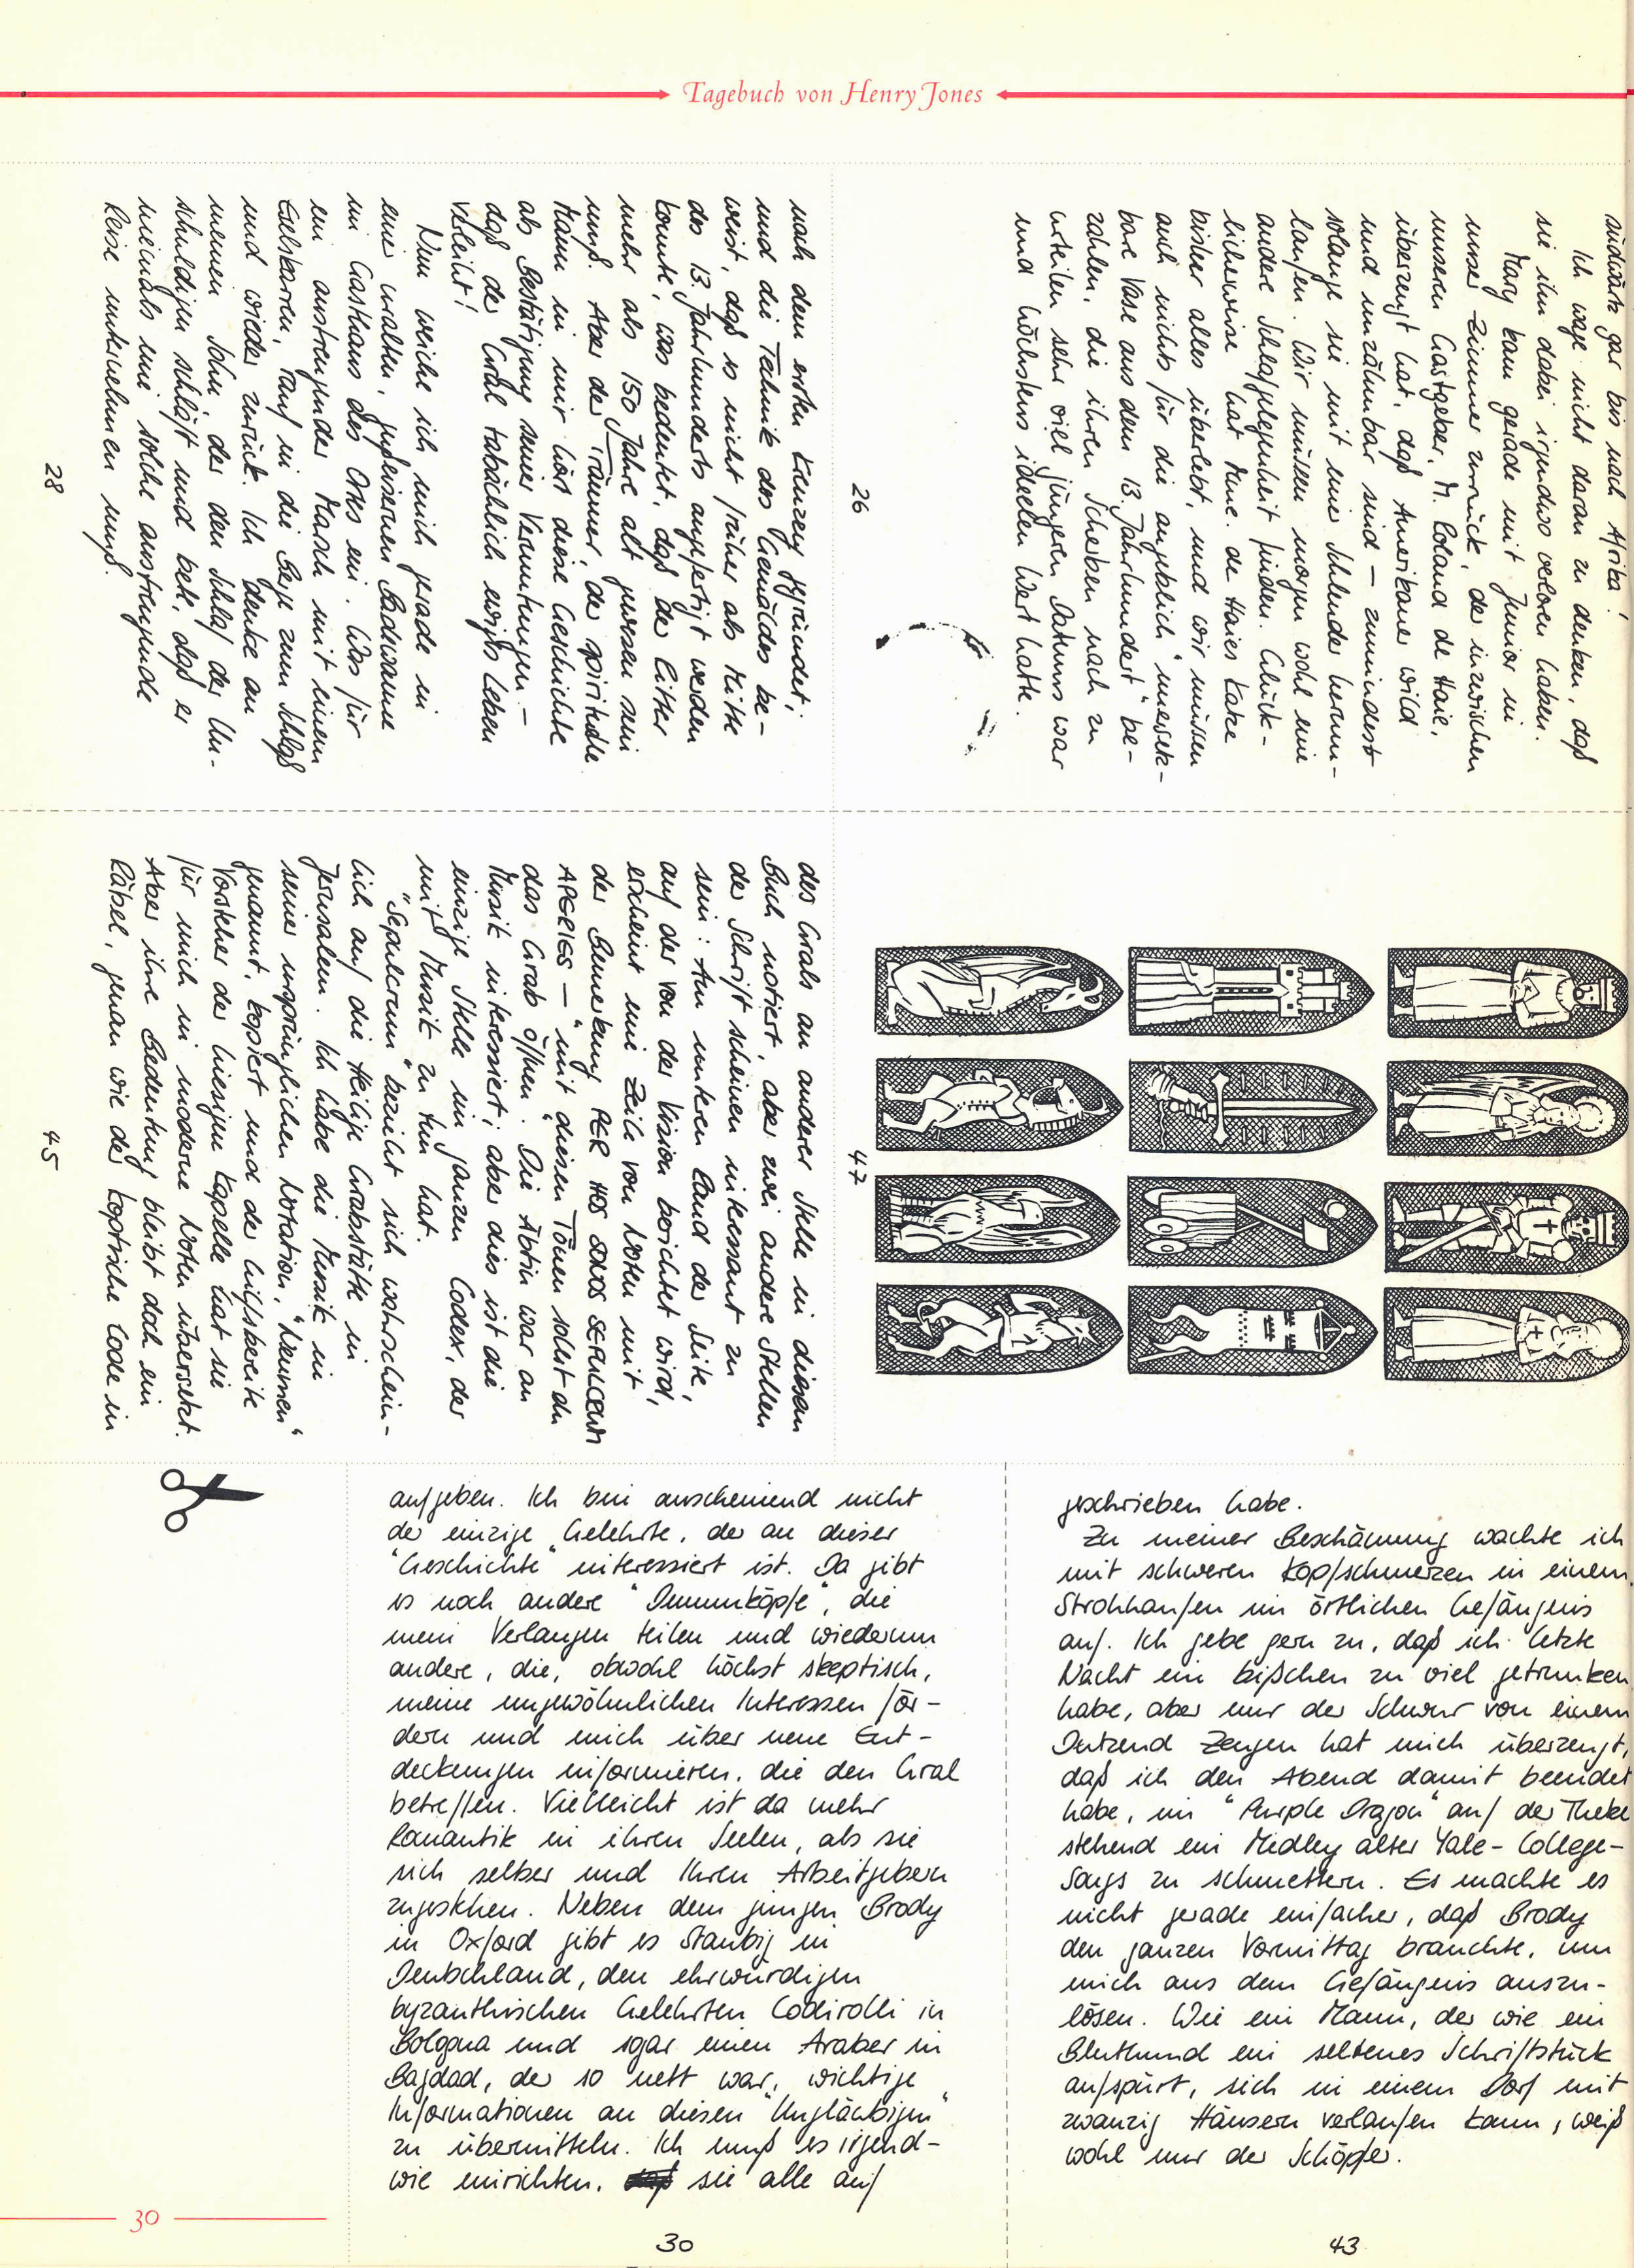 Tagebuch von Henry Jones
südwärts gar bis nach Afrika!
Ich wage nicht daran zu denken, daß
sie ihn dabei irgendwo verloren haben.
Mary kam gerade mit Junior in
unser Zimmer zurück, der inzwischen
unseren Gastgeber, M. Roland de Haie,
überzeugt hat, daß Amerikaner wild
und unzähmbar sind – zumindest
solange sie mit einer Schleuder herum-
laufen. Wir müssen morgen wohl eine
andere Schlafgelegenheit finden. Glück-
licherweise hat Mme. de Haies Katze
bisher alles überlebt, und wir müssen
auch nichts für die angeblich "unersetz-
bare Vase aus dem 13. Jahrhundert" be-
zahlen, die ihren Scherben nach zu
urteilen sehr viel jüngeren Datums war
und höchstens ideellen Wert hatte.
26
nach dem ersten Kreuzzug gegründet;
und die Technik des Gemäldes be-
weist, daß es nicht früher als Mitte
des 13. Jahrhunderts angefertigt werden
konnte, was bedeutet, daß der Ritter
mehr als 150 Jahre alt gewesen sein
muß. Aber der Träumer, der spirituelle
Mann in mir hört diese Geschichte
als Bestätigung seiner Vermutungen –
daß der Gral tatsächlich ewiges Leben
verleiht!
Nun weiche ich mich gerade in
einer uralten, gußeisernen Badewanne
im Gasthaus des Ortes ein. Was für
ein anstrengender Marsch mit einem
Eselskarren, rauf in die Berge zum Schloß
und wieder zurück. Ich denke an
meinen Sohn, der den Schlaf der Un-
schuldigen schläft und bete, daß er
niemals eine solche anstrengende
Reise unternehmen muß.
28
47
des Grals an anderer Stelle in diesem
Buch notiert, aber zwei andere Stellen
der Schrift scheinen interessant zu
sein: Am unteren Rand der Seite,
auf der von der Vision berichtet wird,
erscheint eine Zeile von Noten mit
der Bemerkung PER HOS SONOS SEPULCRUM
APERIES – "mit diesen Tönen sollst du
das Grab öffnen". Die Äbtin war an
Musik interessiert; aber dies ist die
einzige Stelle im ganzen Codex, der
mit Musik zu tun hat.
"Sepulcrum" bezieht sich wahrschein-
lich auf die Heilige Grabstätte in
Jerusalem. Ich habe die Musik in
seiner ursprünglichen Notation, "Neumen"
genannt, kopiert und der hilfsbereite
Vorsteher der hiesigen Kapelle hat sie
für mich in moderne Noten übersetzt.
Aber ihre Bedeutung bleibt doch ein
Rätsel, genau wie der koptische Code in
45
aufgeben. Ich bin anscheinend nicht
der einzige Gelehrte, der an dieser
"Geschichte" interessiert ist. Da gibt
es noch andere "Dummköpfe", die
mein Verlangen teilen und wiederum
andere, die, obwohl höchst skeptisch,
meine ungewöhnlichen Interessen för-
dern und mich über neue Ent-
deckungen informieren, die den Gral
betreffen. Vielleicht ist da mehr
Romantik in ihren Seelen, als sie
sich selber und Ihren Arbeitgebern
zugestehen. Neben dem jungen Brody
in Oxford gibt es Staubig in
Deutschland, den ehrwürdigen
byzanthischen Gelehrten Codirolli in
Bologna und sogar einen Araber in
Bagdad, der so nett war, wichtige
Informationen an diesen "Ungläubigen"
zu übermitteln. Ich muß es irgend-
wie einrichten, sie alle auf
30
geschrieben habe.
Zu meiner Beschämung wachte ich
mit schweren Kopfschmerzen in einem
Strohhaufen im örtlichen Gefängnis
auf. Ich gebe gern zu, daß ich letzte
Nacht ein bißchen zu viel getrunken
habe, aber nur der Schwur von einem
Dutzend Zeugen hat mich überzeugt,
daß ich den Abend damit beendet
habe, im "Purple Dragon" auf der Theke
stehend ein Medley alter Yale-College-
Songs zu schmettern. Es machte es
nicht gerade einfacher, daß Brody
den ganzen Vormittag brauchte, um
mich aus dem Gefängnis auszu-
lösen. Wie ein Mann, der wie ein
Bluthund ein seltenes Schriftstück
aufspürt, sich in einem Dorf mit
zwanzig Häusern verlaufen kann, weiß
wohl nur der Schöpfer.
43
30